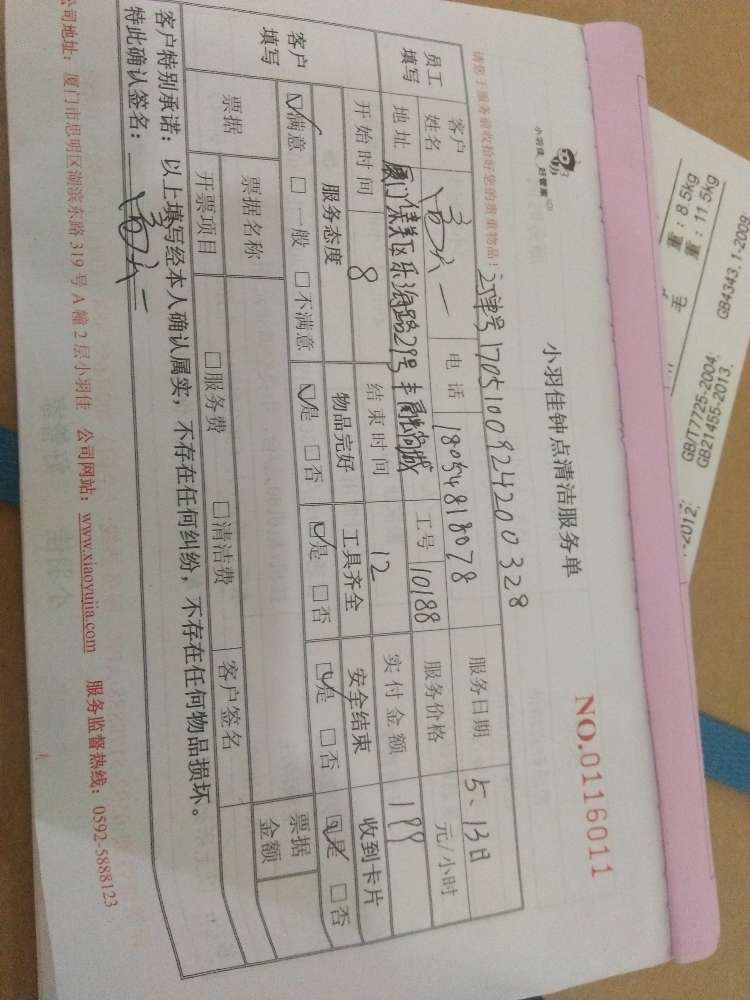 小羽佳 好管家
小羽佳钟点清洁服务单
NO.0116011
请您于服务前收拾好您的贵重物品！
订单号 1705100924200328
员工填写
客户姓名
电话 18054818078
服务日期 5.13日
地址 厦门集美区乐海路29号丰融尚城
工号 10188
服务价格 元/小时
开始时间 8
结束时间 12
实付金额 199
客户填写
服务态度
物品完好
工具齐全
安全结束
收到卡片
☑满意 □一般 □不满意
☑是 □否
☑是 □否
☑是 □否
☑是 □否
票据
票据名称
票据金额
开票项目
□服务费 □清洁费
客户签名
客户特别承诺：以上填写经本人确认属实，不存在任何纠纷，不存在任何物品损坏。
特此确认签名：
公司地址：厦门市思明区湖滨东路 319 号 A 幢 2 层小羽佳 公司网站：www.xiaoyujia.com 服务监督热线：0592-5888123
重：8.5kg
毛 重：11.5kg
GB4343.1-2009
GB/T7725-2004,
GB21455-2013,
-2012;